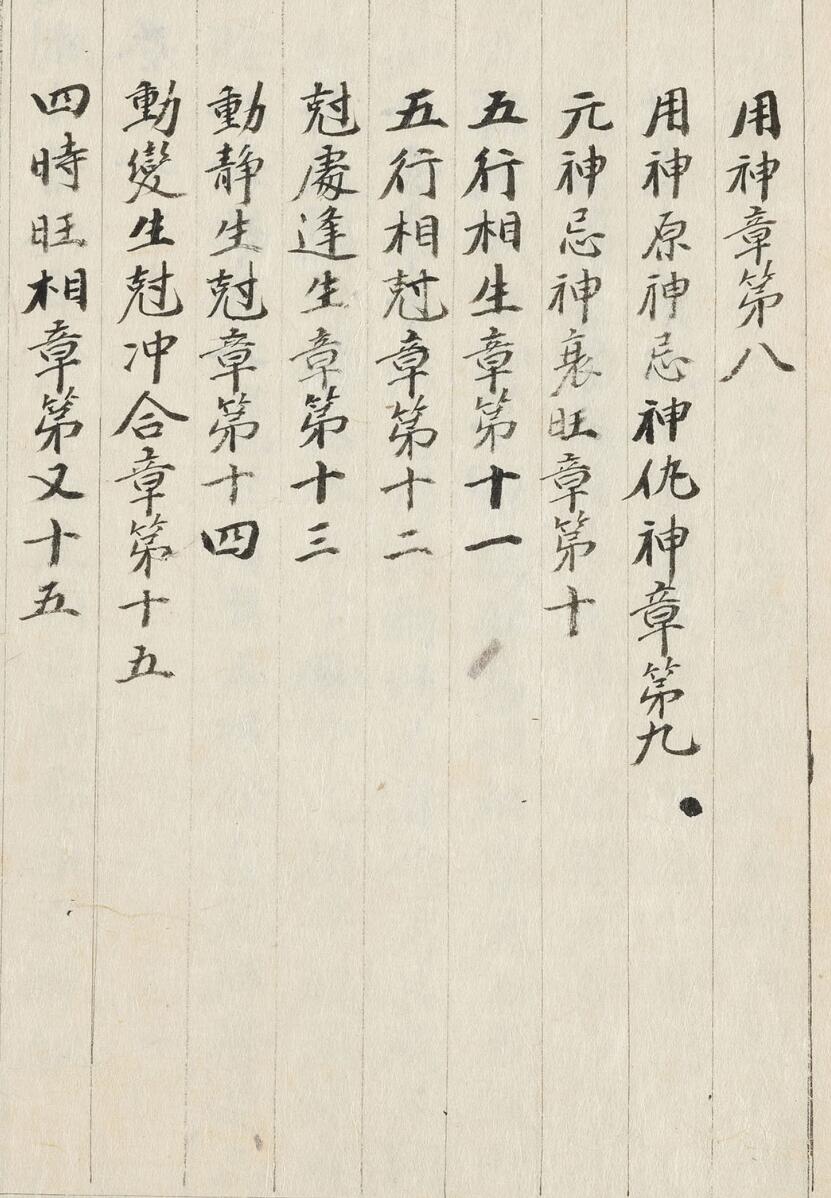 用神章第八
用神原神忌神仇神章第九
元神忌神衰旺章第十
五行相生章第十一
五行相尅章第十二
尅處逢生章第十三
動静生尅章第十四
動變生尅冲合章第十五
四時旺相章第又十五